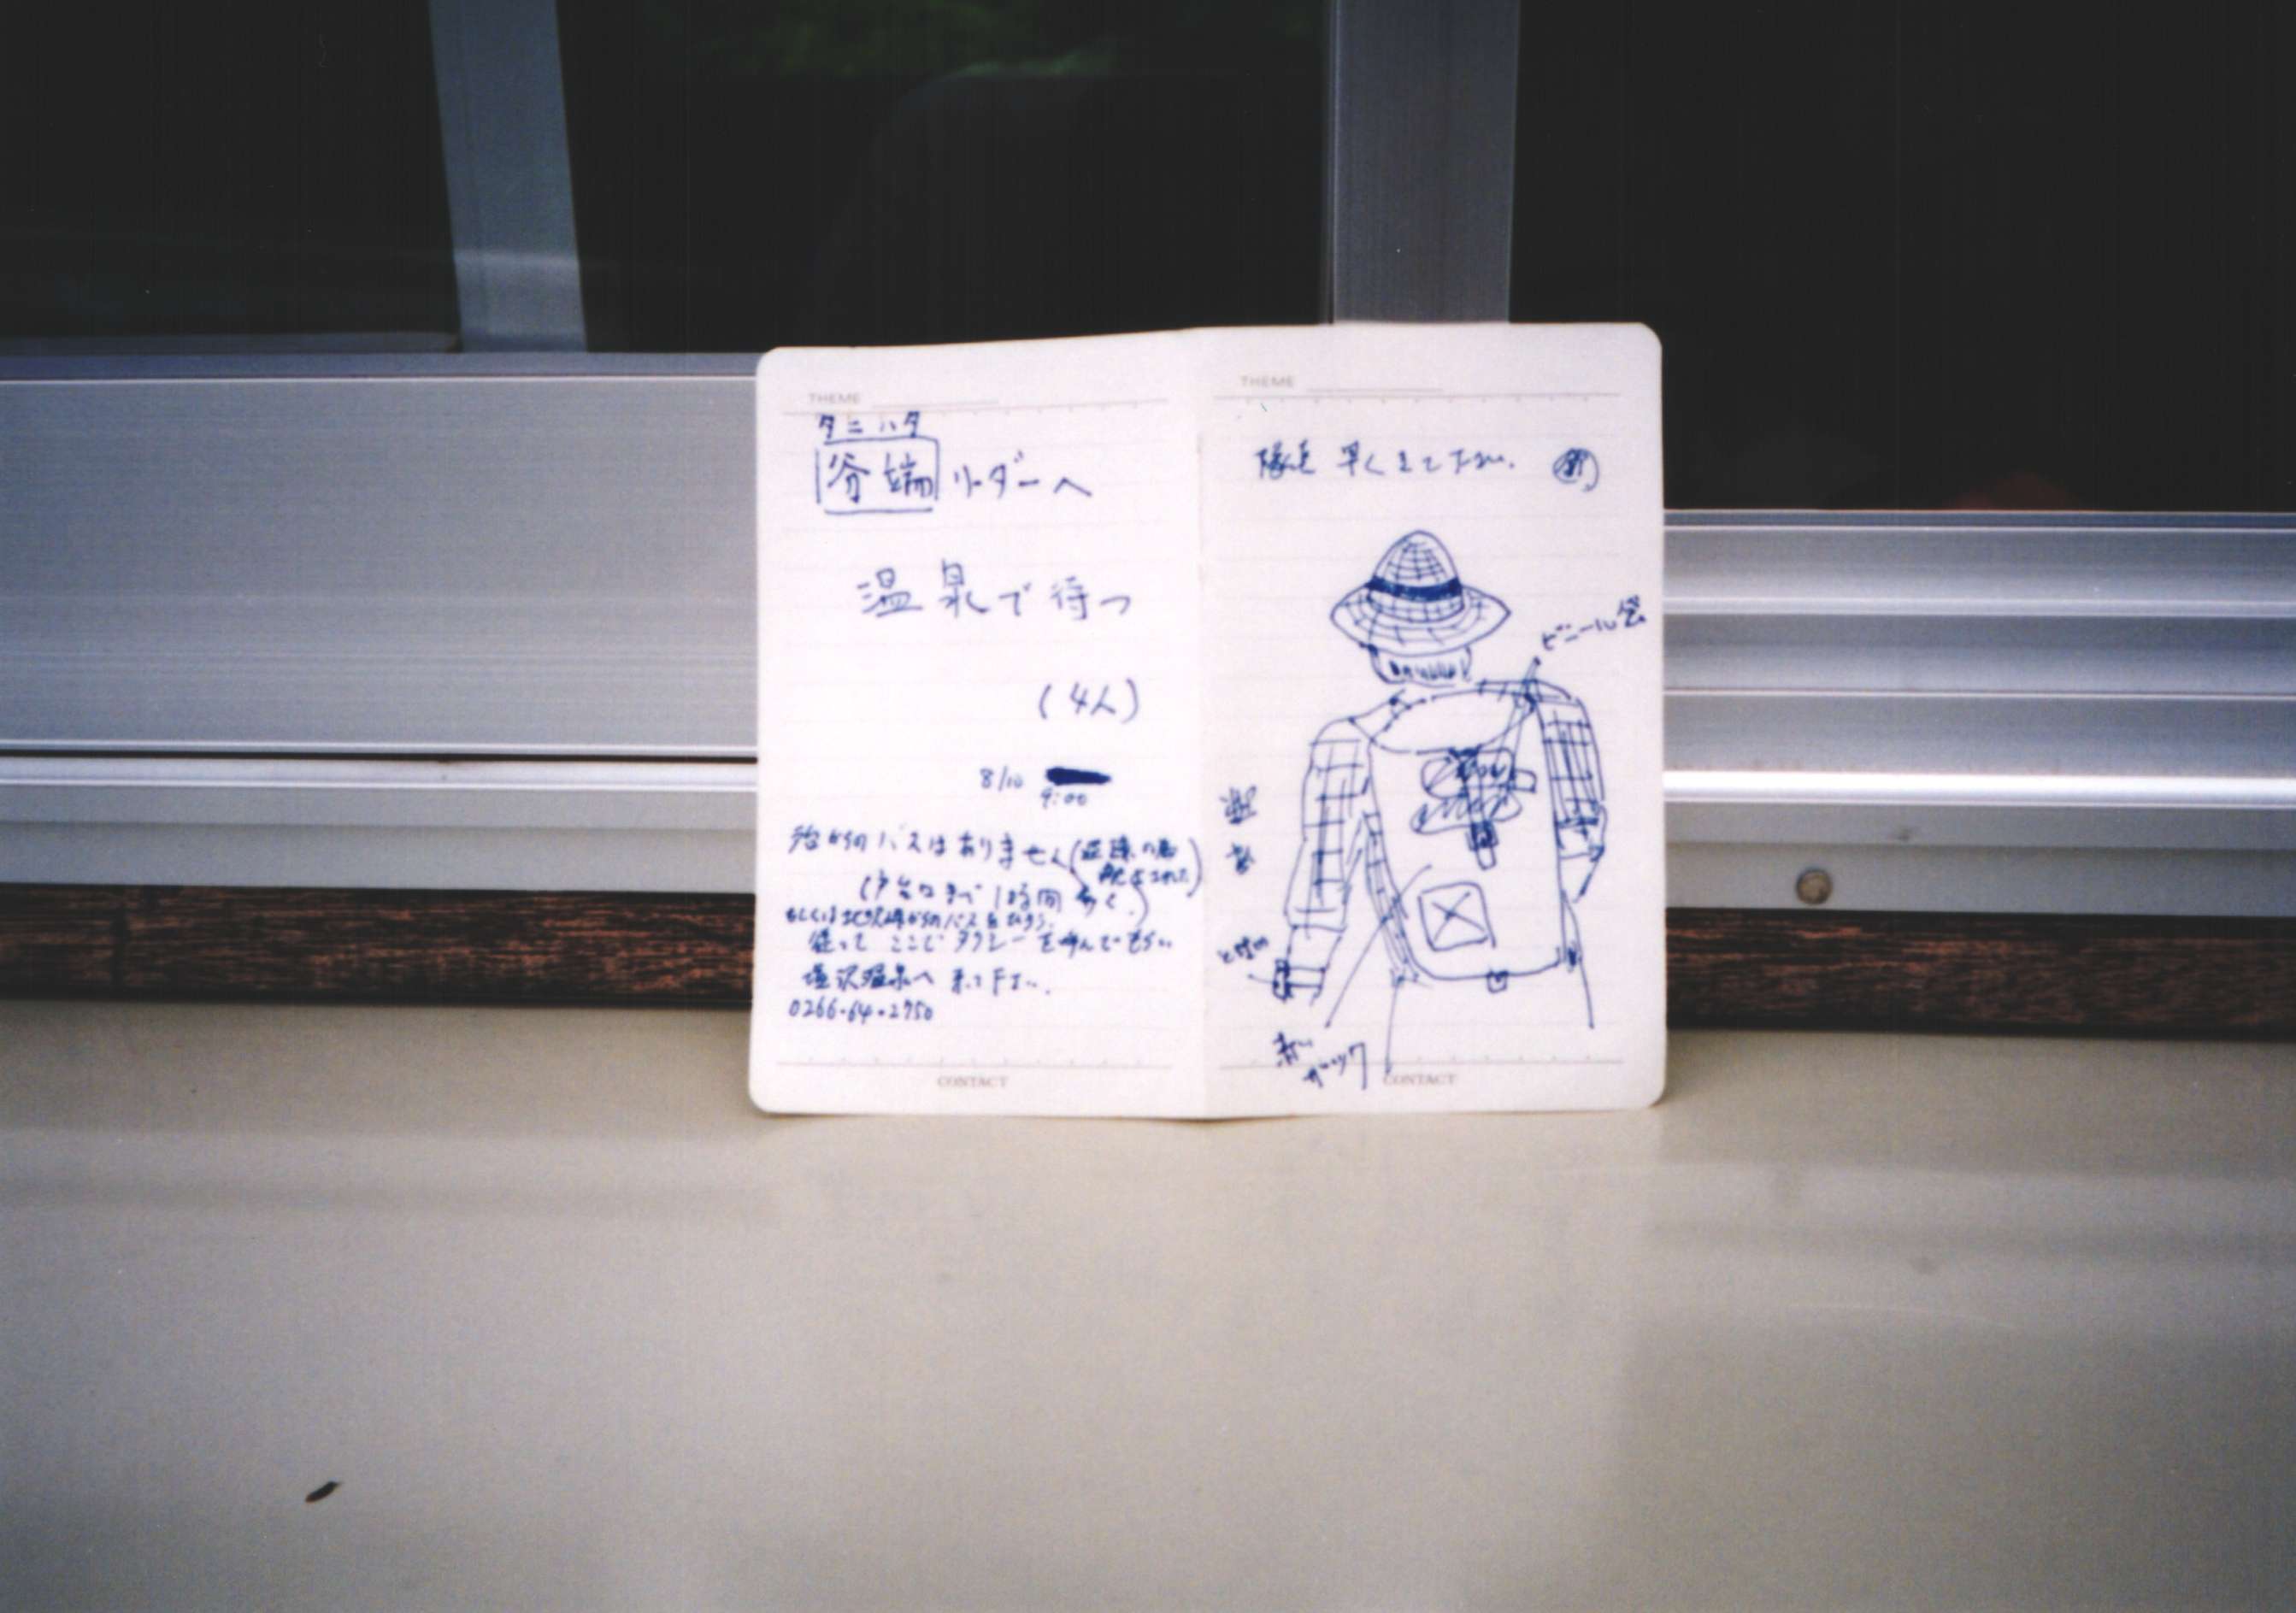 THEME
タニハタ
谷端 リーダーへ
温泉で待つ
(4人)
8/10
9:00
バスはありません
戸台口まで 1時間 歩く
もしくは北沢峠からのバス
従って ここで タクシーを呼んでもらい
塩沢温泉へ 来て下さい.
0266-64-2750
CONTACT
THEME
隊長 早くきて下さい.
ビニール傘
赤い
ザック
CONTACT